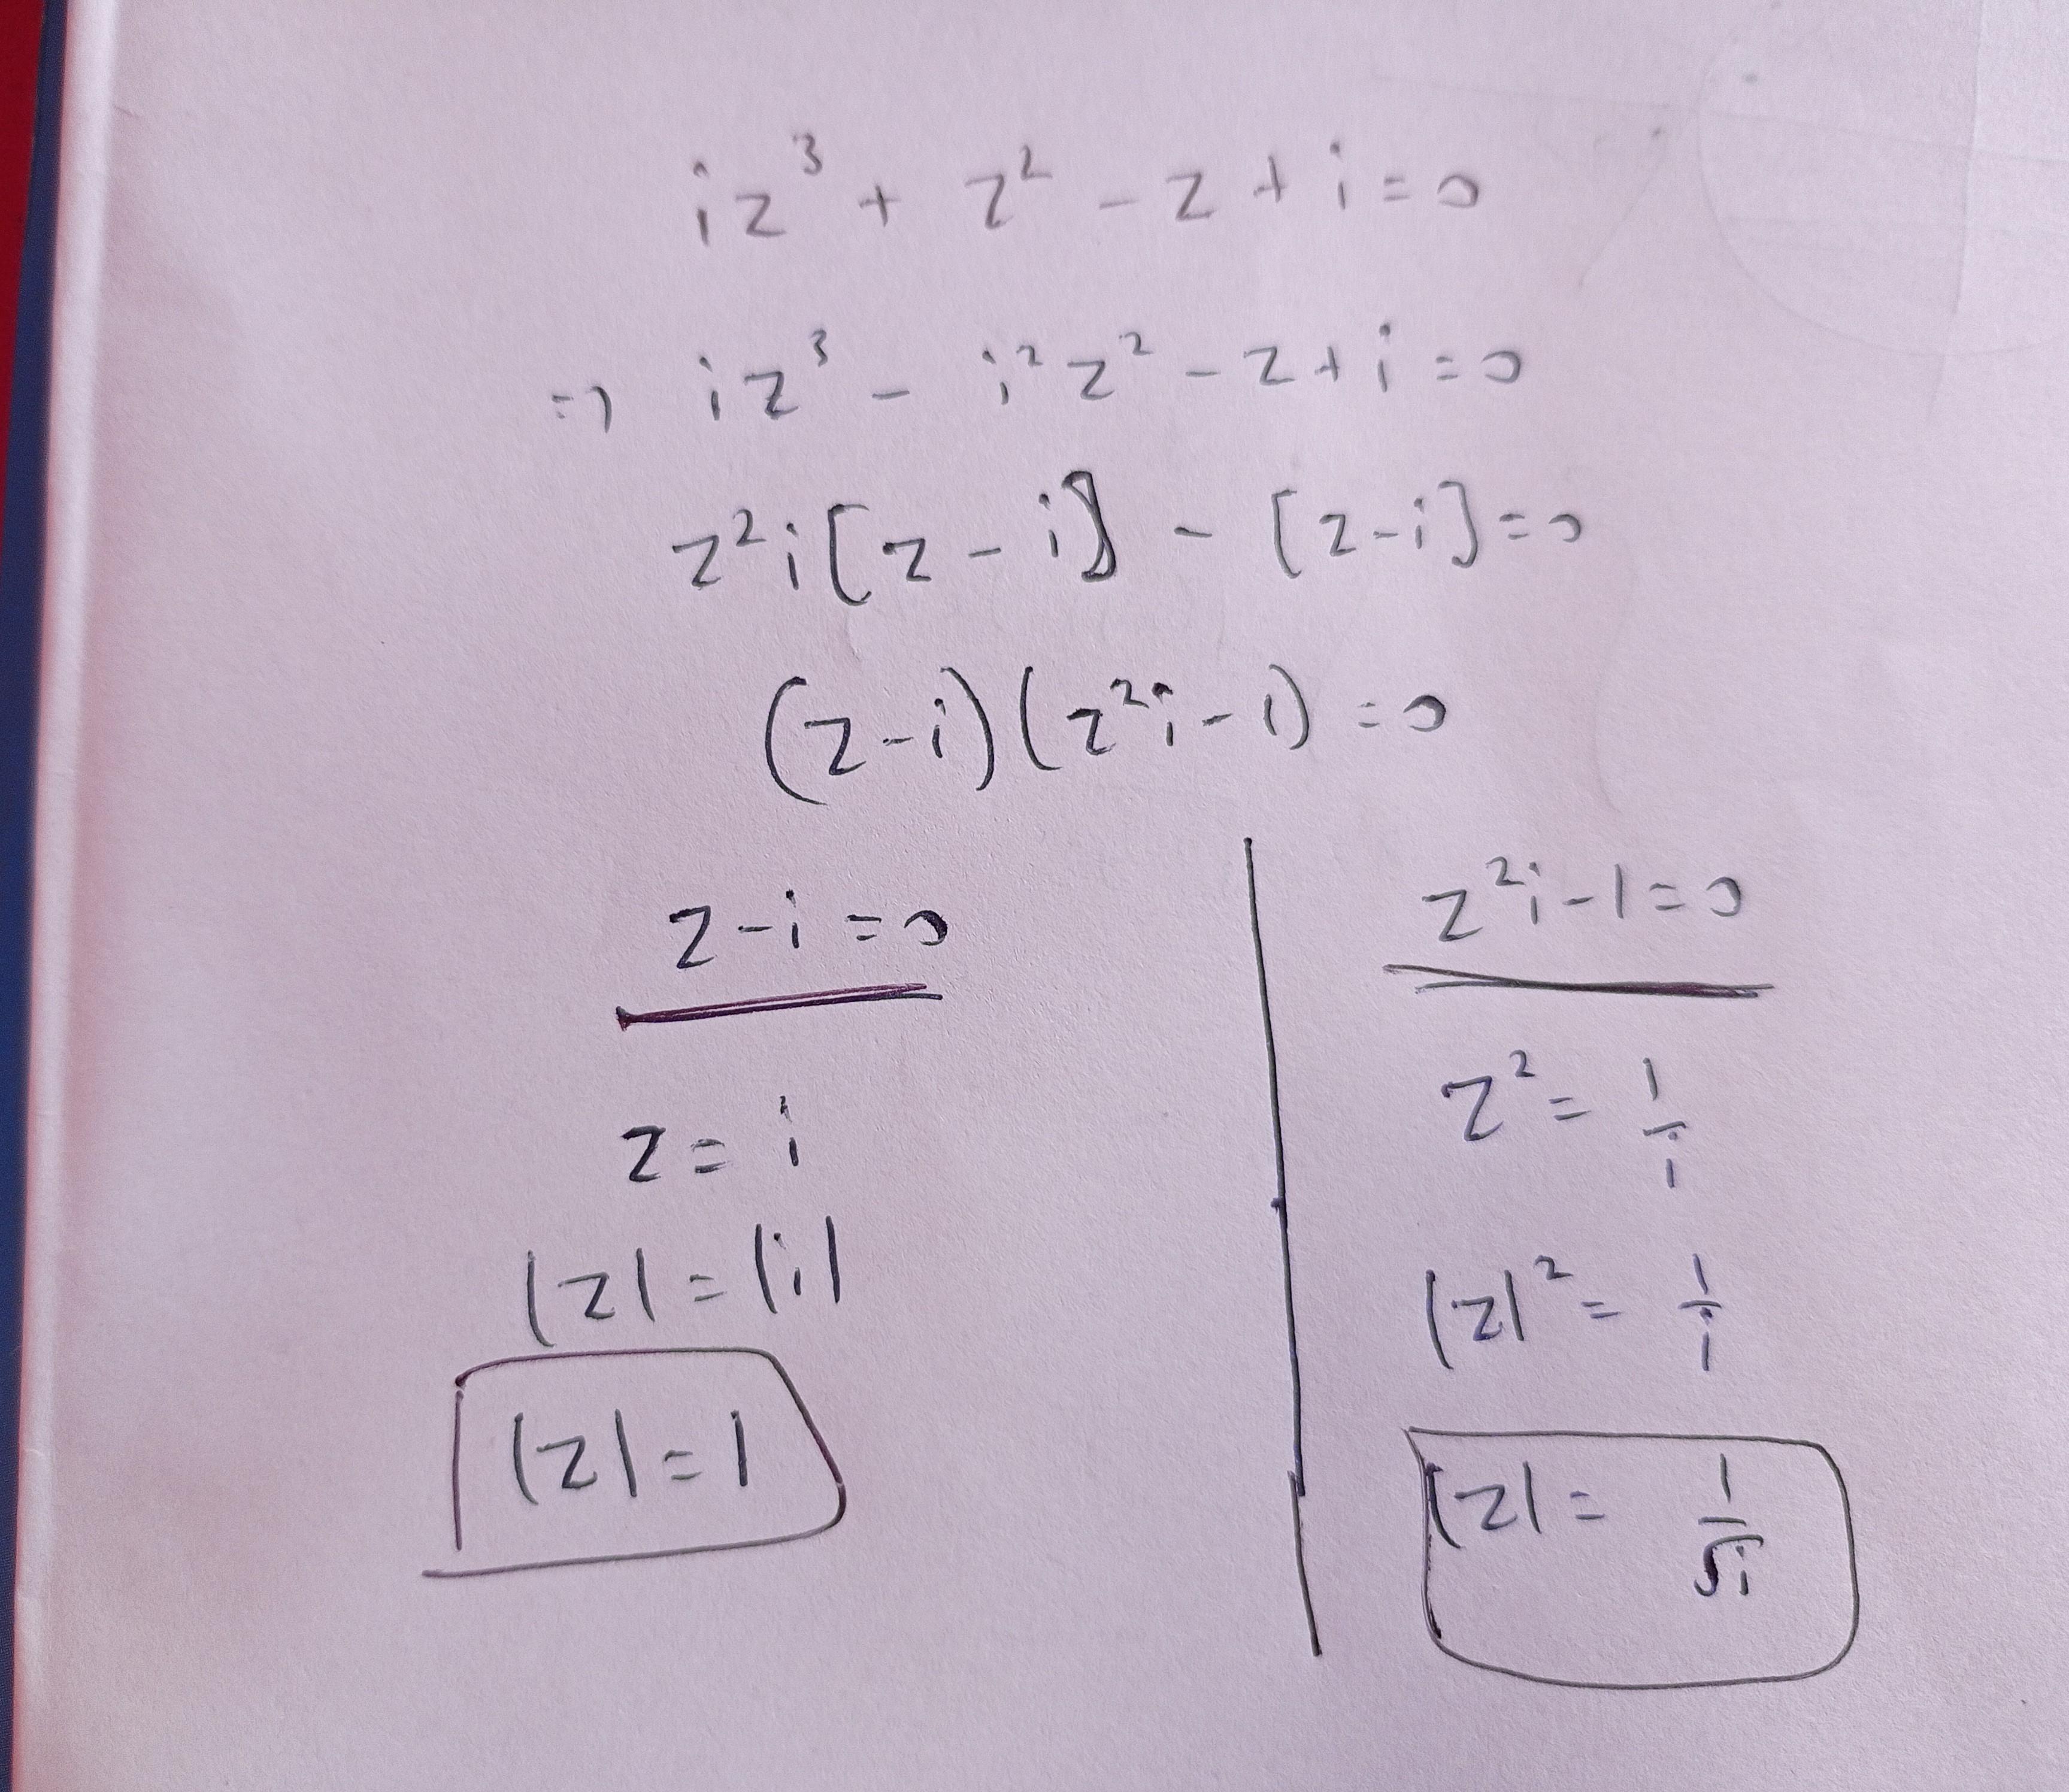 iz³ + z² - z + i = 0
⇒ iz³ - i²z² - z + i = 0
z²i[z - i] - [z - i] = 0
(z - i)(z²i - 1) = 0
z - i = 0
z = i
|z| = |i|
|z| = 1
z²i - 1 = 0
z² = 1/i
|z|² = 1/i
|z| = 1/√i